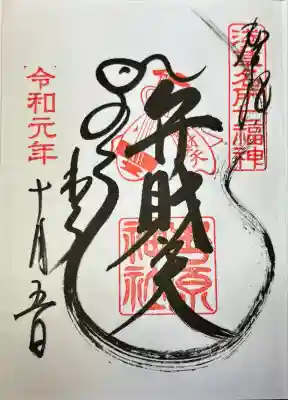 奉拝
浅草名所七福神
弁財天
吉原
神社
令和元年
十月五日